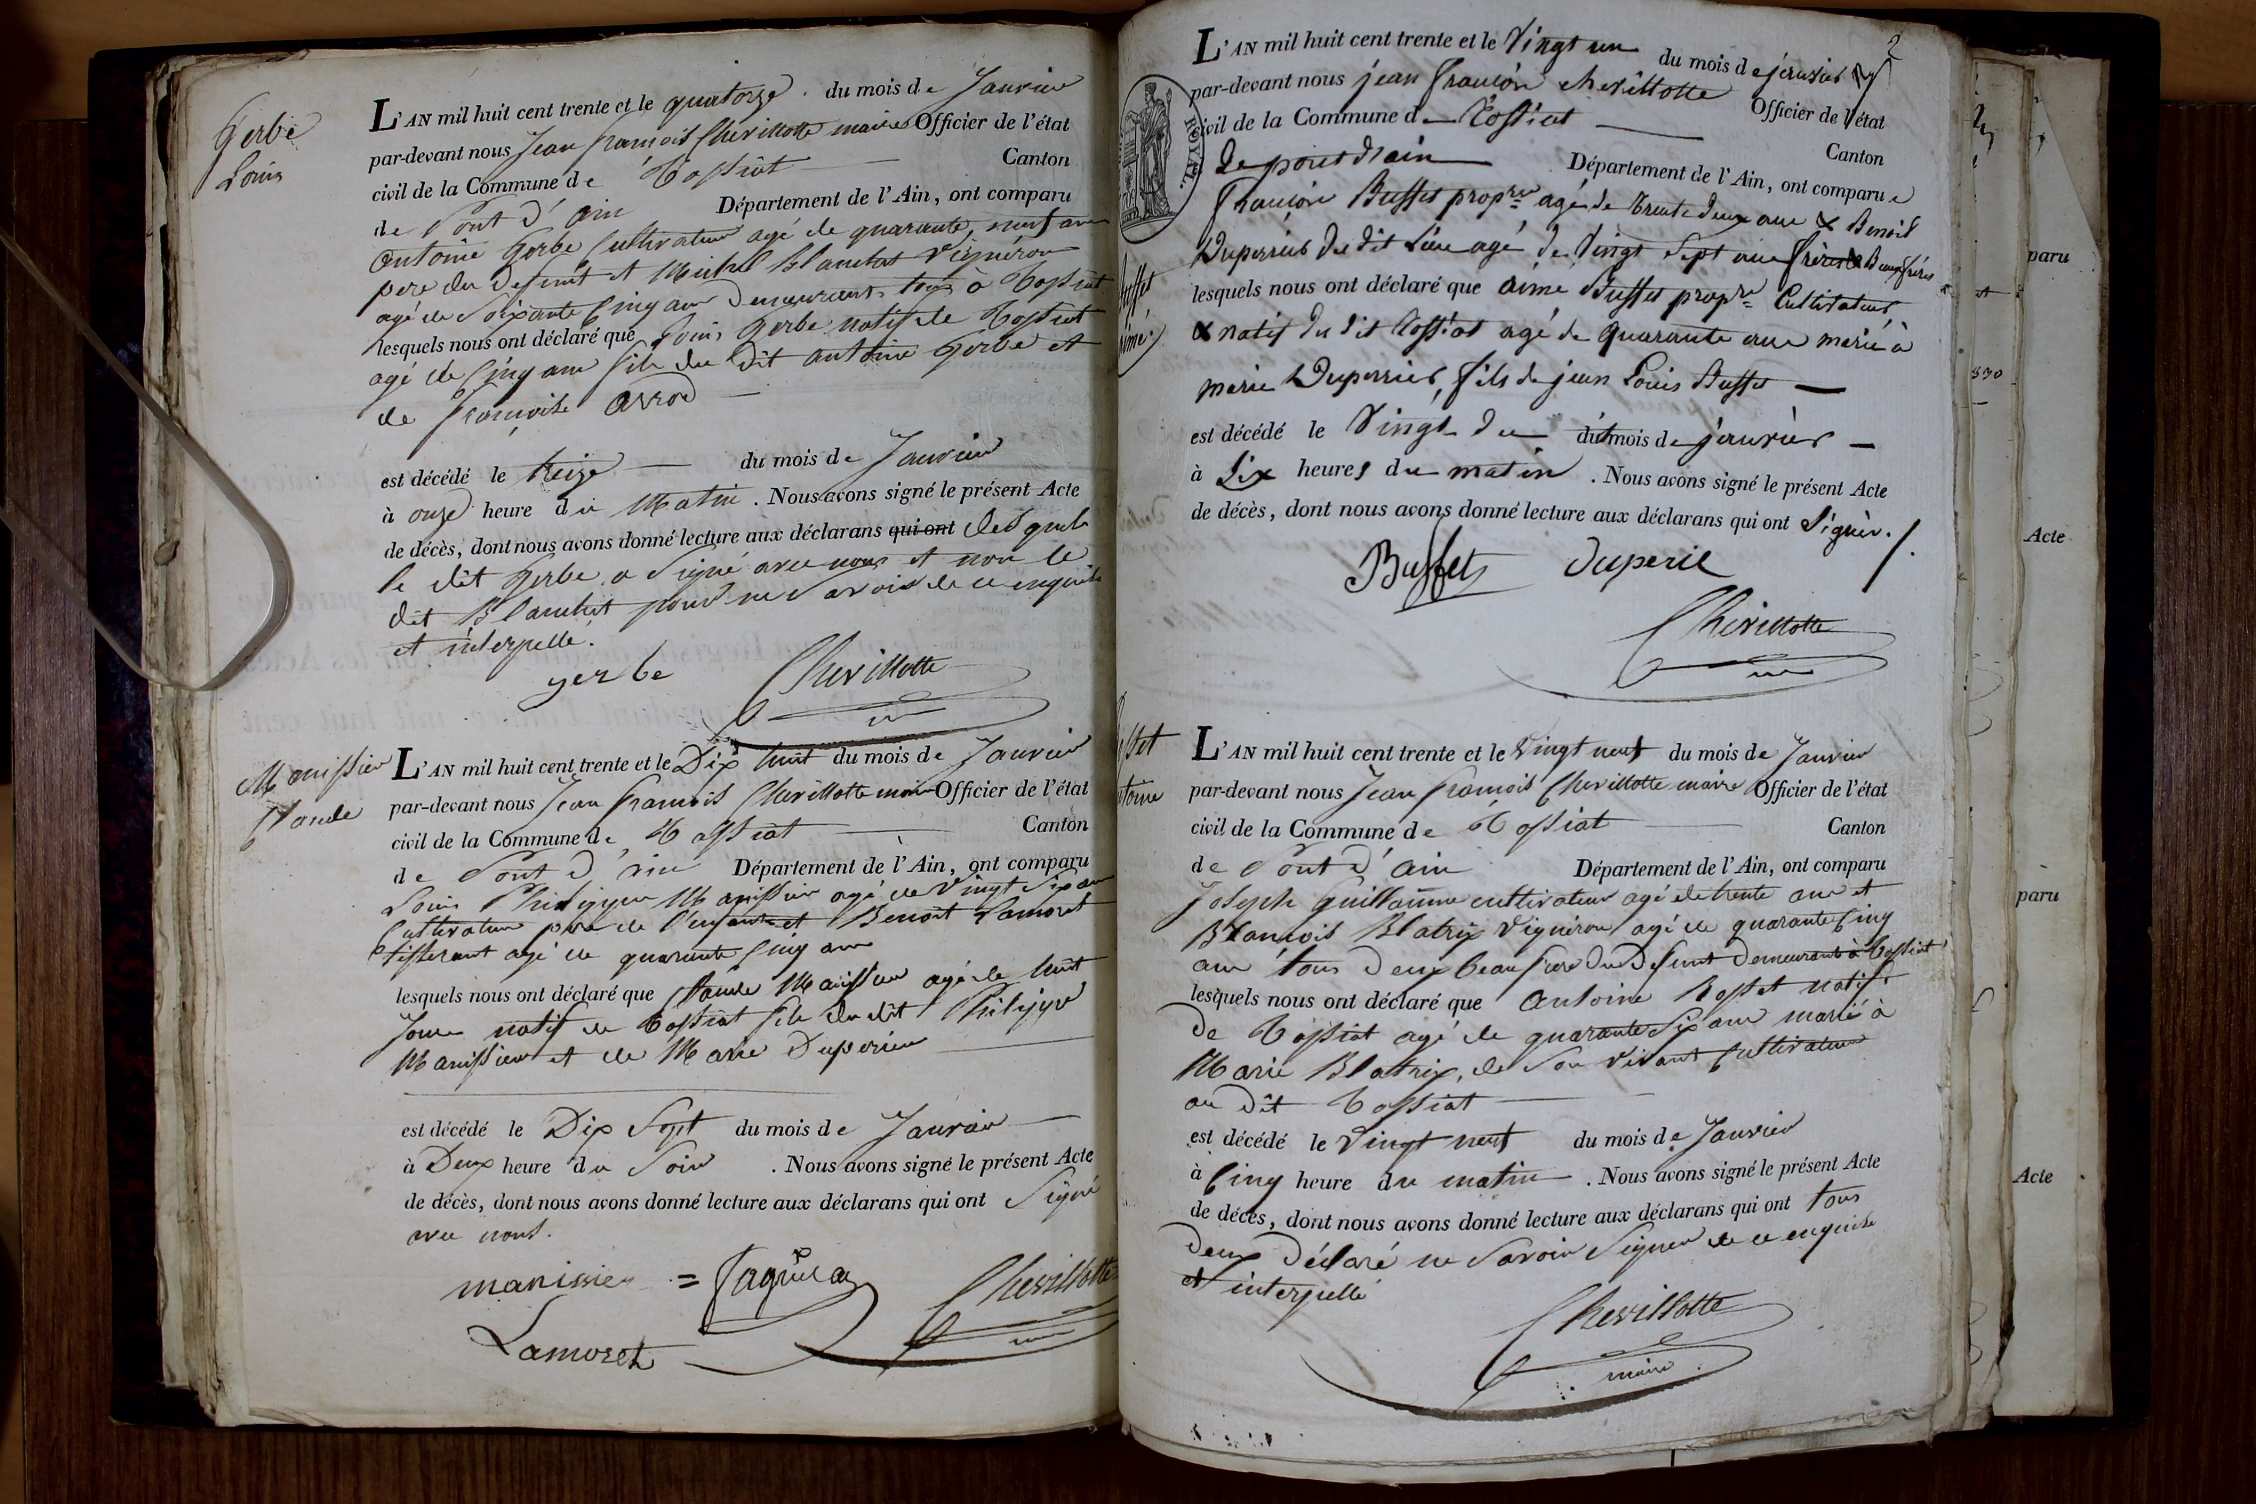 Gerbe
Louis
L'AN mil huit cent trente et le quatorze du mois de Janvier
par-devant nous Jean françois Chevillotte maire Officier de l'état
civil de la Commune de Tossiat Canton
de Pont d'ain Département de l'Ain, ont comparu
antoine Gerbe Cultivateur agé de quarante neuf ans
pere du defunt et Michel Blanchet Vignéron
agé de Soixante Cinq ans demeurants tous à Tossiat
lesquels nous ont déclaré que Louis Gerbe natif de Tossiat
agé de Cinq ans fils du dit antoine Gerbe et
de françoise
est décédé le treize du mois de Janvier
à onze heure du Matin . Nous avons signé le présent Acte
de décès, dont nous avons donné lecture aux déclarans qui ont desquels
le dit Gerbe a Signé avec nous et non le
dit Blanchet pour ne Savoir de ce enquis
et interpellé.
gerbe Chevillotte
Manissier
Claude
L'AN mil huit cent trente et le Dix huit du mois de Janvier
par-devant nous Jean françois Chevillotte maire Officier de l'état
civil de la Commune de Tossiat Canton
de Pont d'ain Département de l'Ain, ont comparu
Louis Philippe Manissier agé de Vingt Six ans
Cultivateur pere de l'enfant et Benoit Lamoret
tisserant agé de quarante Cinq ans
lesquels nous ont déclaré que Claude Manissier agé de huit
Jours natif de Tossiat fils du dit Philippe
Manissier et de Marie Duperier
est décédé le Dix Sept du mois de Janvier
à Deux heure du Soir . Nous avons signé le présent Acte
de décès, dont nous avons donné lecture aux déclarans qui ont Signé
avec nous.
manissier = Chevillotte
Lamoret
2
L'AN mil huit cent trente et le Vingt un du mois de janvier
par-devant nous jean françois chevillotte Officier de l'état
civil de la Commune de Tossiat Canton
de pont d'ain Département de l'Ain, ont comparu
ROYAL.
françois Buffet propre agé de trente deux ans & Benoit
Duperrier du dit Lieu agé de Vingt Sept ans frères & Beaufrères
lesquels nous ont déclaré que aimé Buffet propre Cultivateur
& natif du dit Tossiat agé de quarante ans marié à
marie Duperrier, fils de jean Louis Buffet
est décédé le Vingt du dit mois de janvier
à Six heures du matin . Nous avons signé le présent Acte
de décès, dont nous avons donné lecture aux déclarans qui ont Signér.
Buffet duperie
Chevillotte
L'AN mil huit cent trente et le Vingt neuf du mois de Janvier
par-devant nous Jean françois Chevillotte maire Officier de l'état
civil de la Commune de Tossiat Canton
de Pont d'ain Département de l'Ain, ont comparu
Joseph Guillaume cultivateur agé de trente ans et
François Blatrix Vignéron agé de quarante Cinq
ans tous deux beau frere du Defunt demeurant à Tossiat
lesquels nous ont déclaré que Antoine Rosset natif
de Tossiat agé de quarante Six ans marié à
Marie Blatrix, de Son Vivant Cultivateur
au dit Tossiat
est décédé le Vingt neuf du mois de Janvier
à Cinq heure du matin . Nous avons signé le présent Acte
de décès, dont nous avons donné lecture aux déclarans qui ont tous
deux déclaré ne Savoir Signer de ce enquis
et interpellé
Chevillotte
maire
paru
Acte
paru
Acte